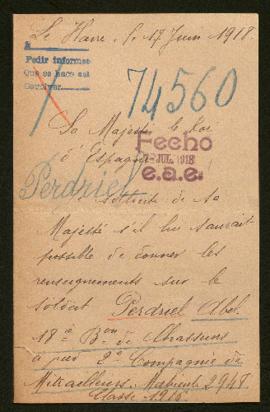 Le Havre, le 17 Juin 1918.
A
Pedir informes
Que se hace así
Devolver.
74560
Sa Majesté le Roi
d'Espagne
Fecho
JUL. 1918
e.a.e.
Perdriel
Je sollicite de Sa
Majesté s'il lui serait
possible de donner les
renseignements sur le
soldat Perdriel Abel
18e Bon de Chasseurs
à pied 2e Compagnie de
Mitrailleurs. Matricule 2948
Classe 1916